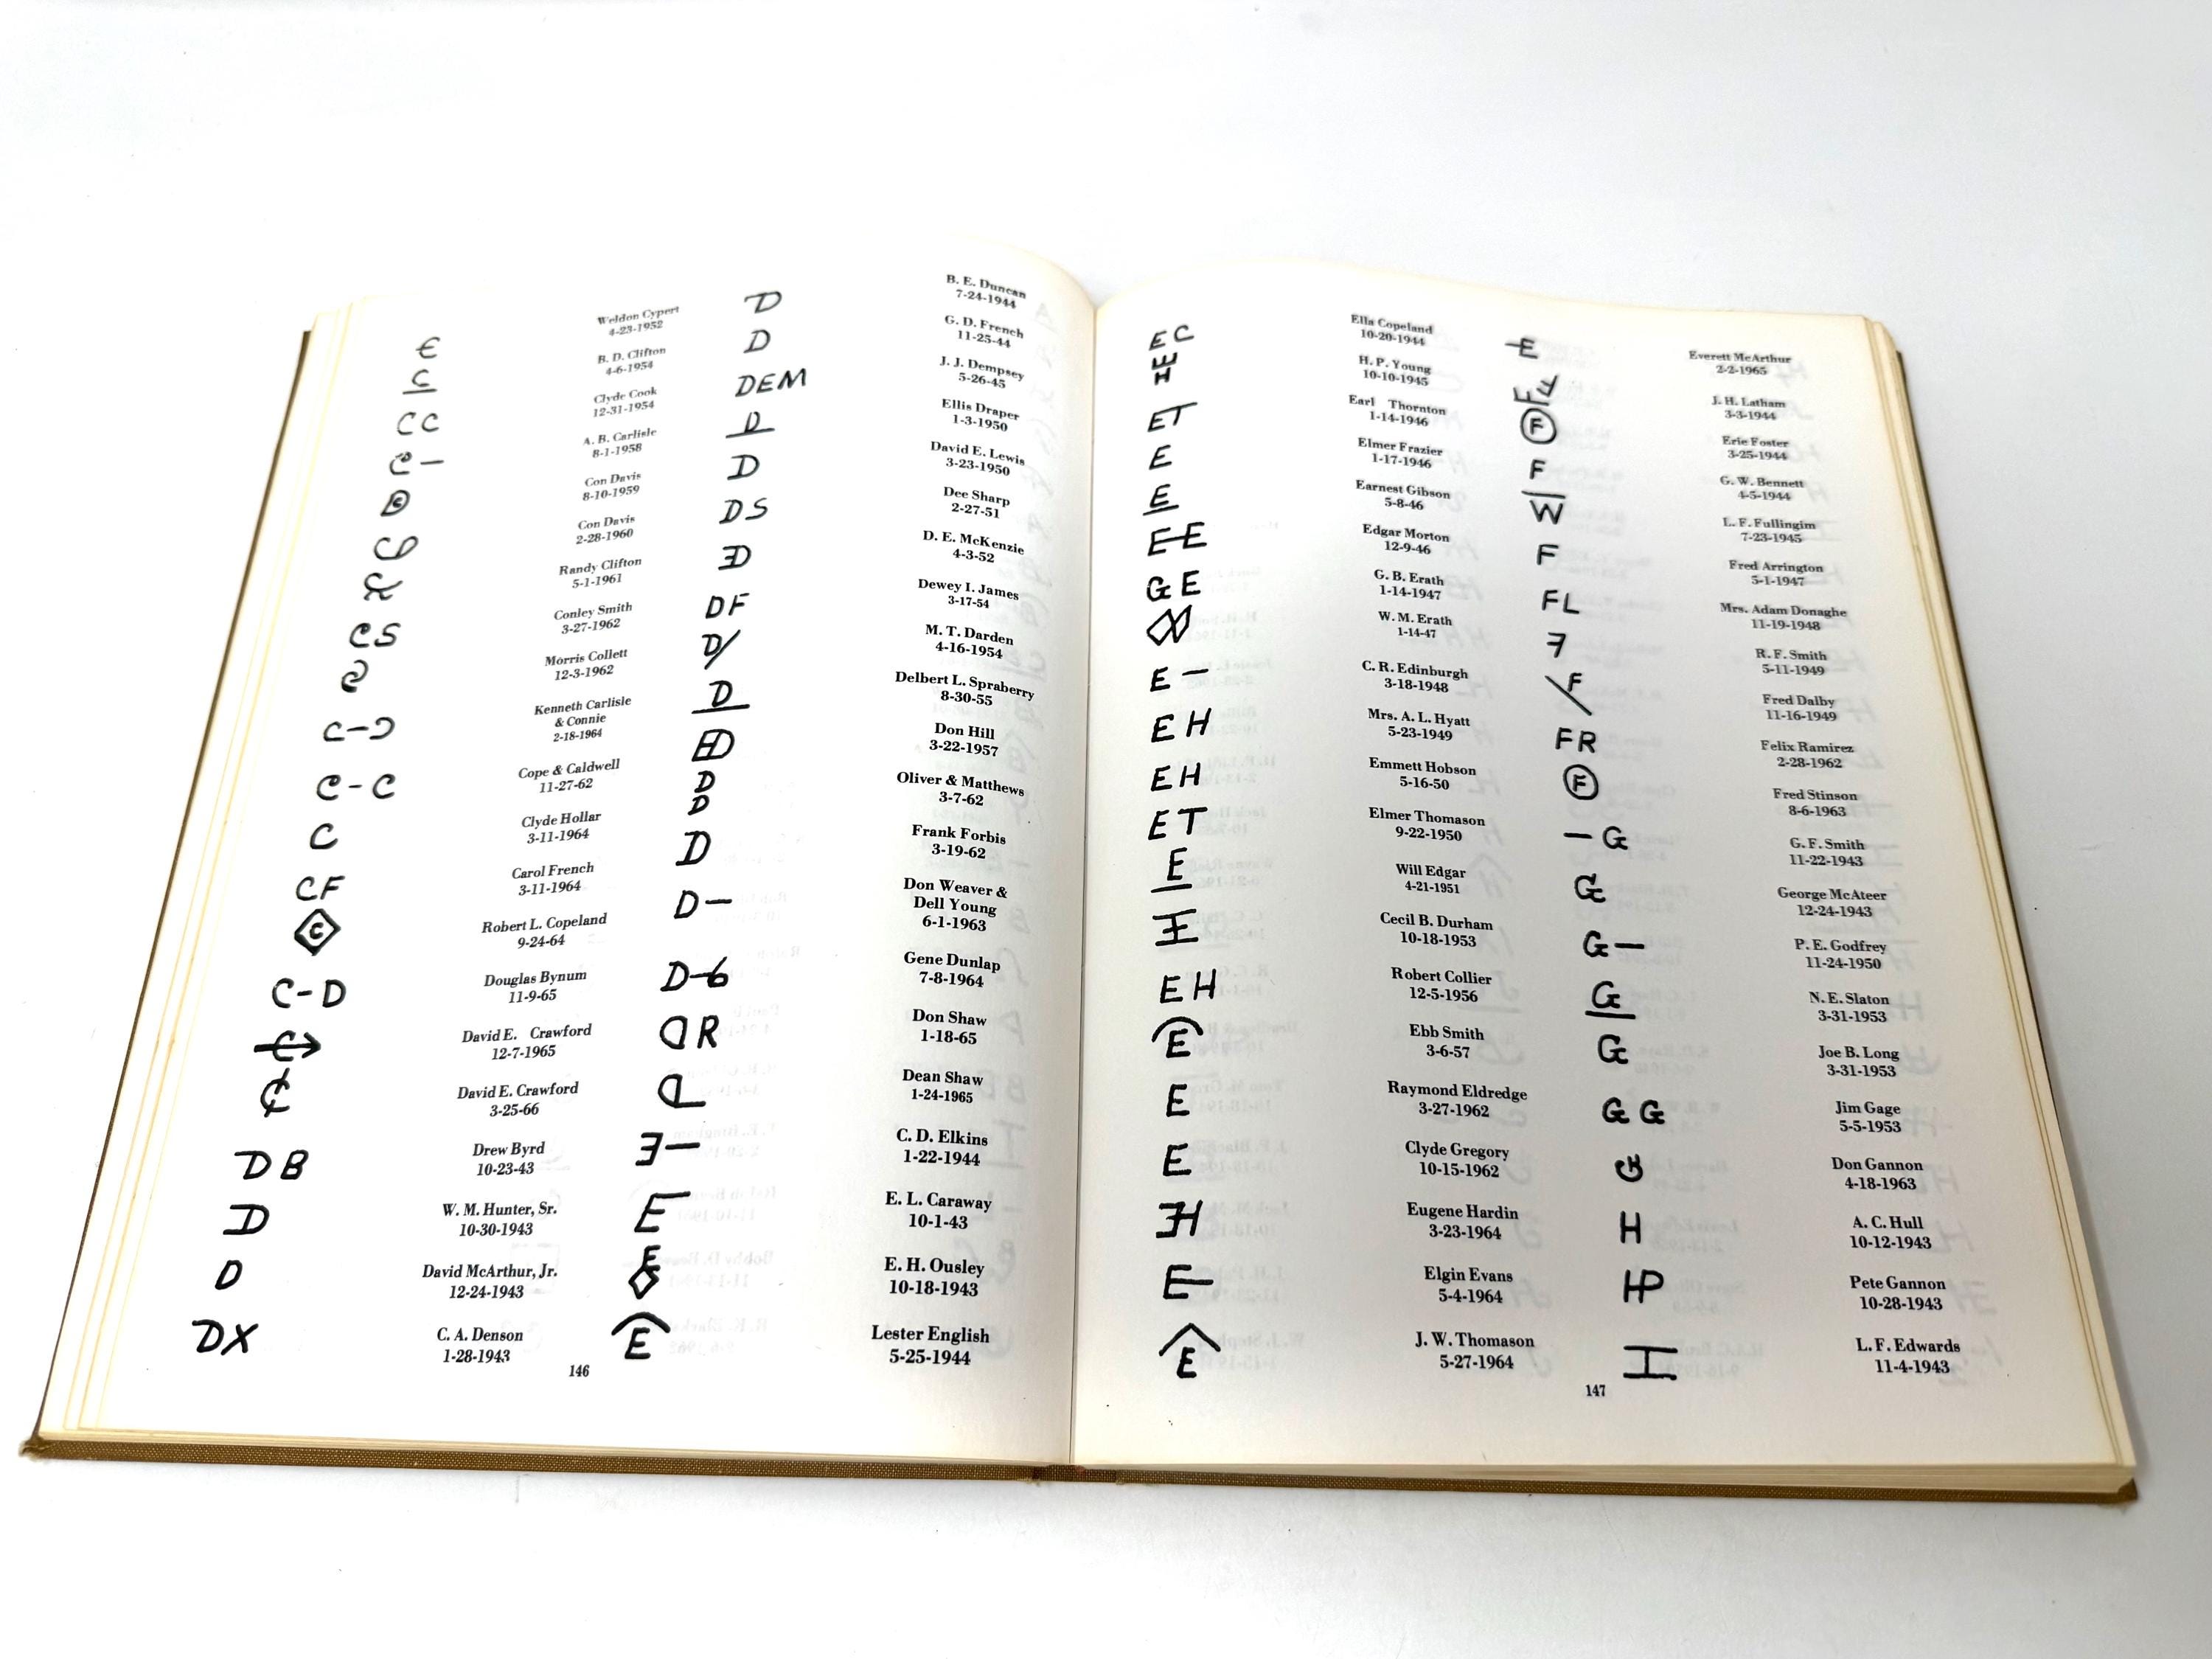 Weldon Cypert
4-23-1952
B. D. Clifton
4-6-1954
C
Clyde Cook
12-31-1954
CC
A. B. Carlisle
8-1-1958
C —
Con Davis
8-10-1959
C
Con Davis
2-28-1960
Randy Clifton
5-1-1961
Conley Smith
3-27-1962
CS
Morris Collett
12-3-1962
Kenneth Carlisle
& Connie
2-18-1964
C-C
Cope & Caldwell
11-27-62
C
Clyde Hollar
3-11-1964
CF
Carol French
3-11-1964
C
Robert L. Copeland
9-24-64
C-D
Douglas Bynum
11-9-65
C
David E. Crawford
12-7-1965
David E. Crawford
3-25-66
DB
Drew Byrd
10-23-43
D
W. M. Hunter, Sr.
10-30-1943
D
David McArthur, Jr.
12-24-1943
DX
C. A. Denson
1-28-1943
D
B. E. Duncan
7-24-1944
D
G. D. French
11-25-44
DEM
J. J. Dempsey
5-26-45
D
Ellis Draper
1-3-1950
D
David E. Lewis
3-23-1950
DS
Dee Sharp
2-27-51
D. E. McKenzie
4-3-52
DF
Dewey I. James
3-17-54
D/
M. T. Darden
4-16-1954
D
Delbert L. Spraberry
8-30-55
Don Hill
3-22-1957
D
D
Oliver & Matthews
3-7-62
D
Frank Forbis
3-19-62
D—
Don Weaver &
Dell Young
6-1-1963
D-6
Gene Dunlap
7-8-1964
R
Don Shaw
1-18-65
Dean Shaw
1-24-1965
C. D. Elkins
1-22-1944
E
E. L. Caraway
10-1-43
E
E. H. Ousley
10-18-1943
E
Lester English
5-25-1944
146
EC
Ella Copeland
10-20-1944
H
H. P. Young
10-10-1945
ET
Earl Thornton
1-14-1946
E
Elmer Frazier
1-17-1946
E
Earnest Gibson
5-8-46
E-E
Edgar Morton
12-9-46
GE
G. B. Erath
1-14-1947
W. M. Erath
1-14-47
E —
C. R. Edinburgh
3-18-1948
EH
Mrs. A. L. Hyatt
5-23-1949
EH
Emmett Hobson
5-16-50
ET
Elmer Thomason
9-22-1950
E
Will Edgar
4-21-1951
Cecil B. Durham
10-18-1953
EH
Robert Collier
12-5-1956
E
Ebb Smith
3-6-57
E
Raymond Eldredge
3-27-1962
E
Clyde Gregory
10-15-1962
Eugene Hardin
3-23-1964
E
Elgin Evans
5-4-1964
E
J. W. Thomason
5-27-1964
E
Everett McArthur
2-2-1965
J. H. Latham
3-3-1944
F
Erie Foster
3-25-1944
F
G. W. Bennett
4-5-1944
W
L. F. Fullingim
7-23-1945
F
Fred Arrington
5-1-1947
FL
Mrs. Adam Donaghe
11-19-1948
R. F. Smith
5-11-1949
F
Fred Dalby
11-16-1949
FR
Felix Ramirez
2-28-1962
F
Fred Stinson
8-6-1963
— G
G. F. Smith
11-22-1943
G
George McAteer
12-24-1943
G —
P. E. Godfrey
11-24-1950
G
N. E. Slaton
3-31-1953
G
Joe B. Long
3-31-1953
GG
Jim Gage
5-5-1953
Don Gannon
4-18-1963
H
A. C. Hull
10-12-1943
HP
Pete Gannon
10-28-1943
L. F. Edwards
11-4-1943
147